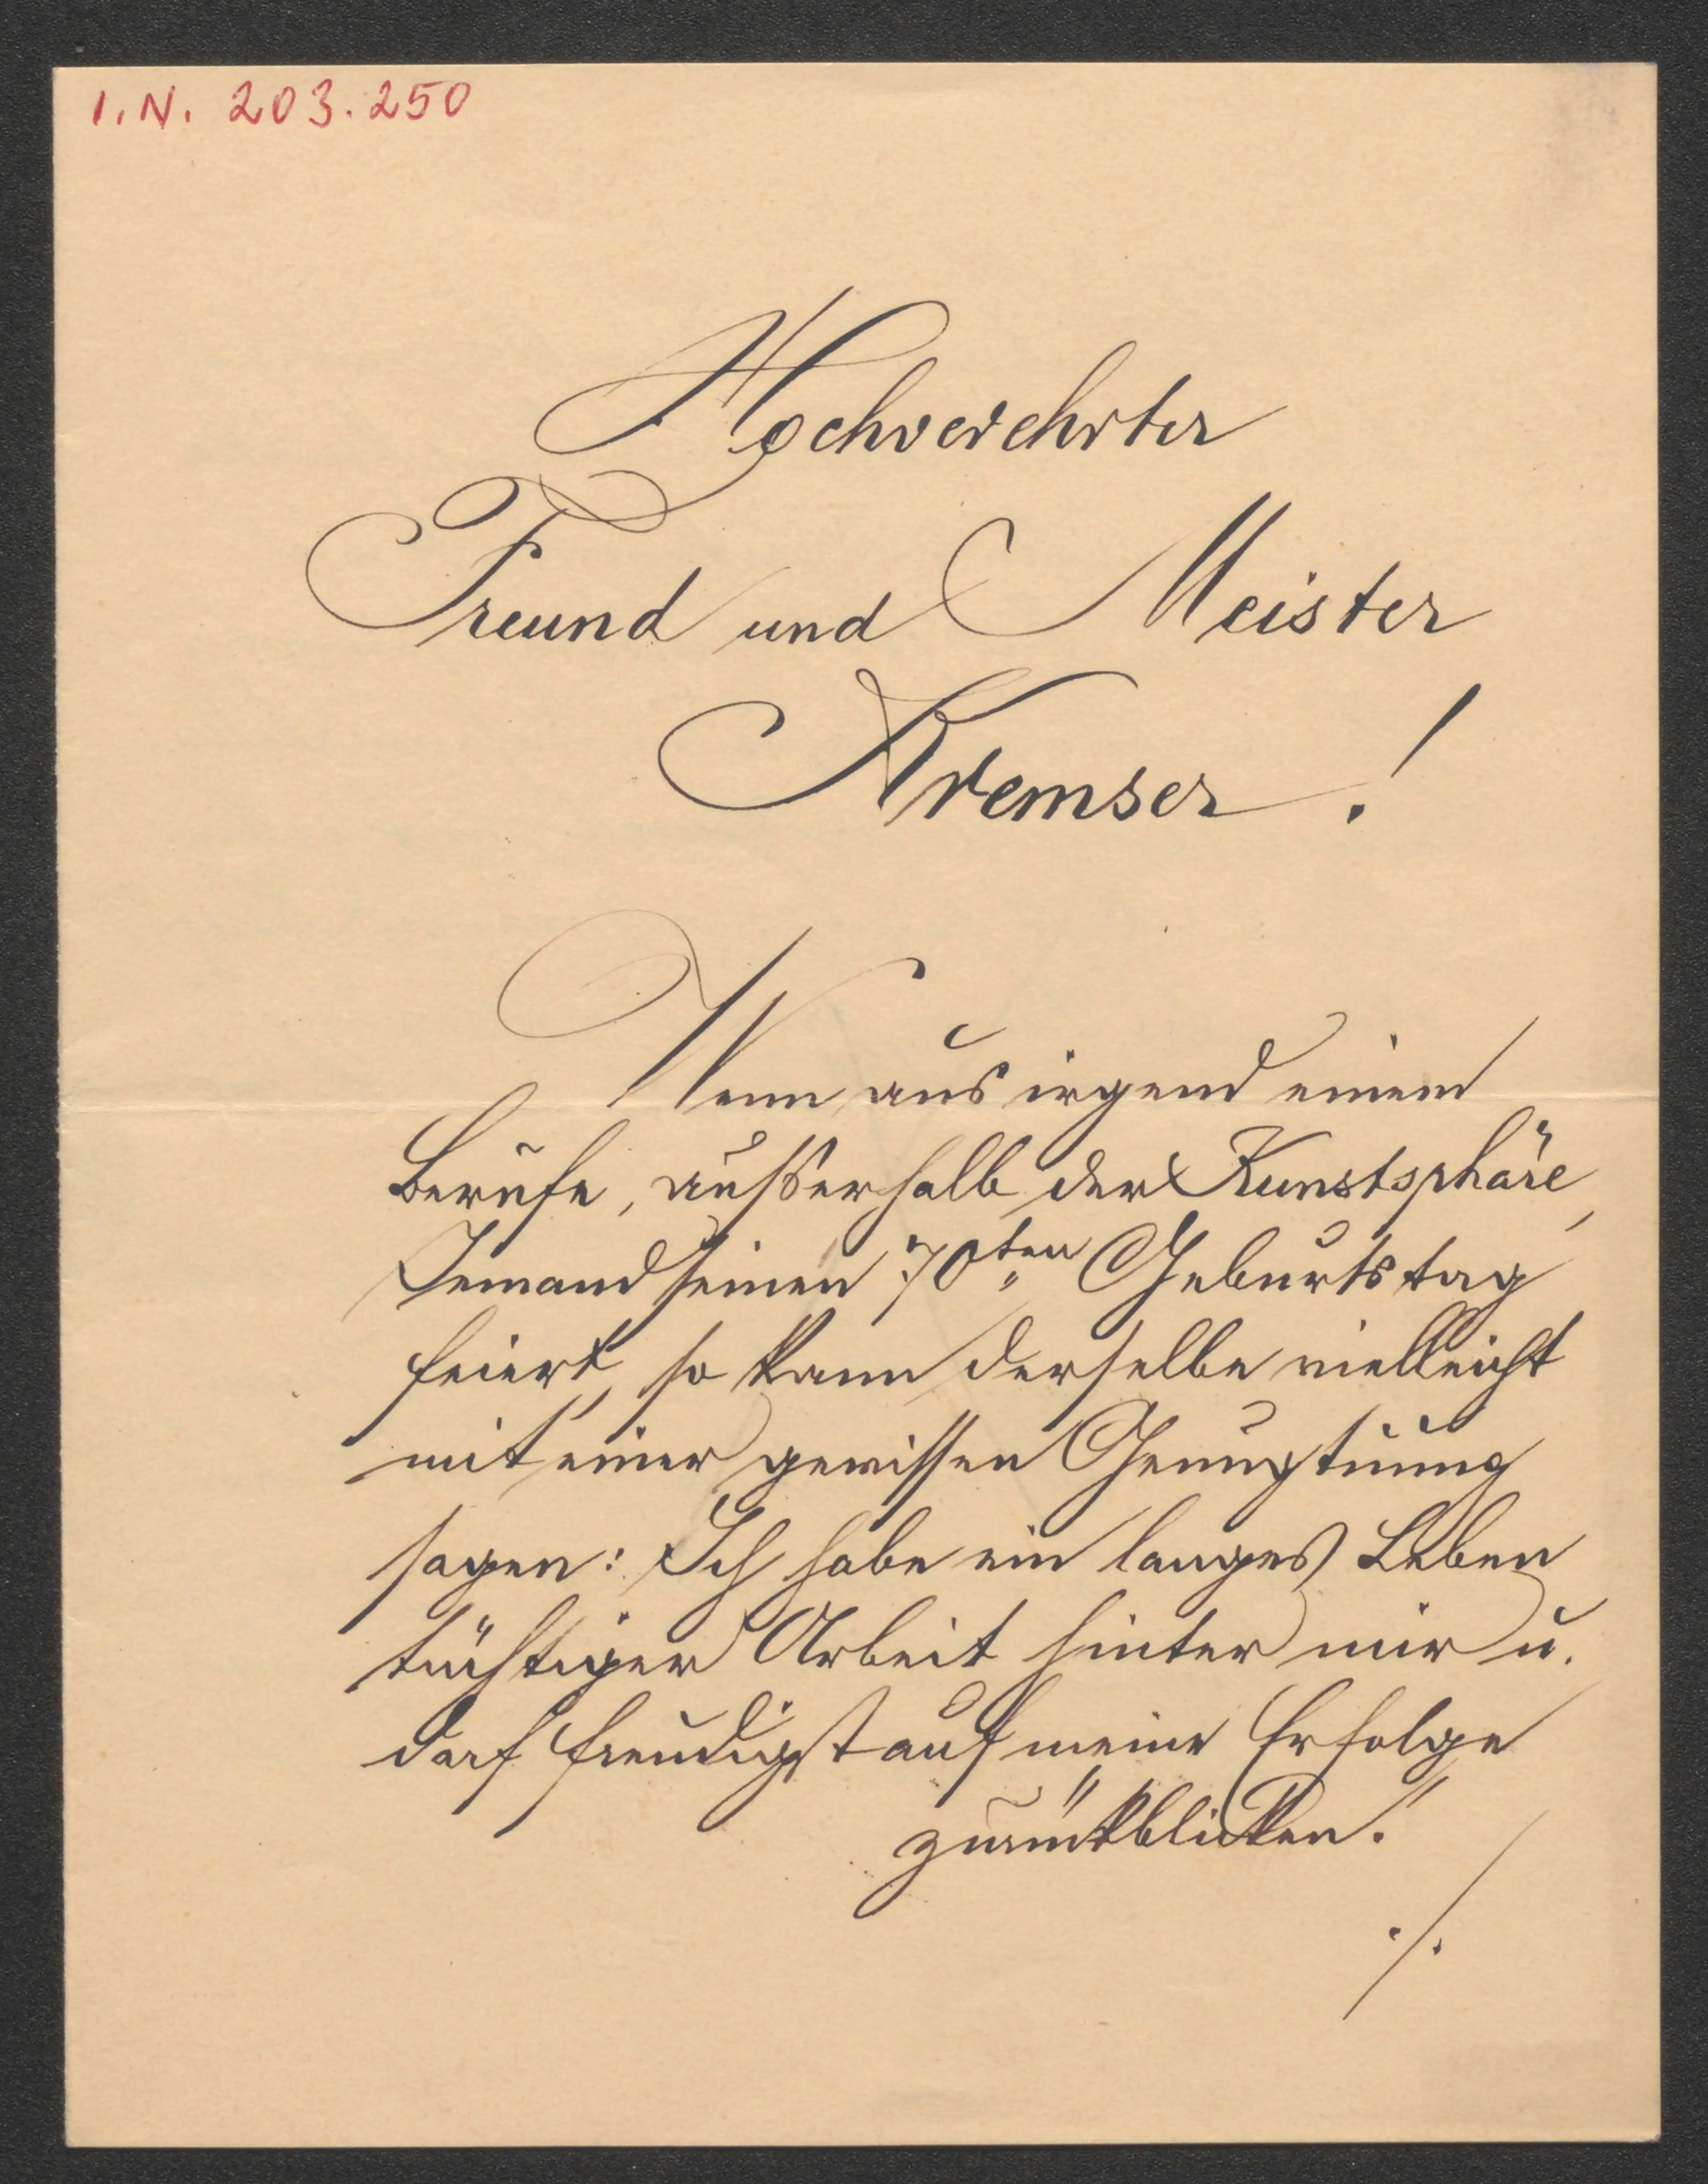 I. N. 203.250
Hochverehrter
Freund und Meister
Kremser !
Wenn aus irgend einem
Berufe, ausserhalb der Kunstsphäre,
Jemand seinen 70ten Geburtstag
feiert, so kann derselbe vielleicht
mit einer gewissen Genugtuung
sagen: Ich habe ein langes Leben
tüchtiger Arbeit hinter mir u.
darf freudigst auf meine Erfolge
zurückblicken."
./.